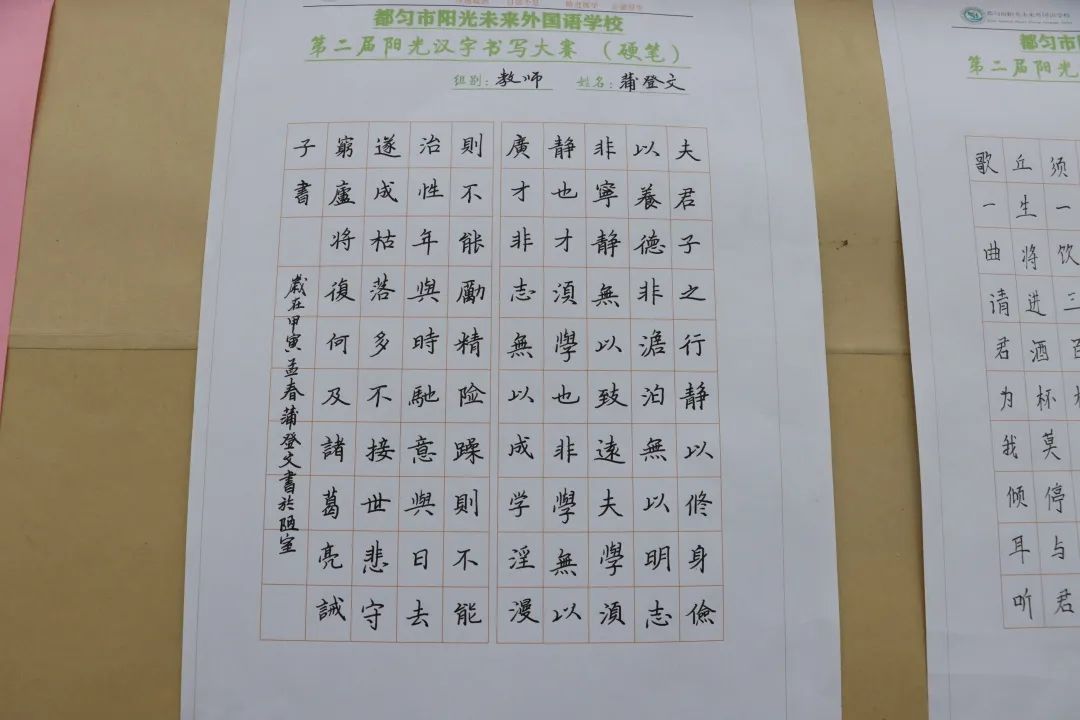 都匀市阳光未来外国语学校
第二届阳光汉字书写大赛（硬笔）
组别：教师 姓名：蒲登文
夫君子之行静以修身儉
以養德非澹泊無以明志
非寧静無以致遠夫學湏
静也才湏學也非學無以
廣才非志無以成学淫漫
則不能勵精险躁則不能
治性年與時馳意與日去
遂成枯落多不接世悲守
窮廬將復何及諸葛亮誡
子書
歲在甲寅孟春蒲登文書於陋室
都匀市阳光未来外国语学校
都匀市
第二届阳光
须一饮三
丘生将进酒杯莫停与君
歌一曲请君为我倾耳听